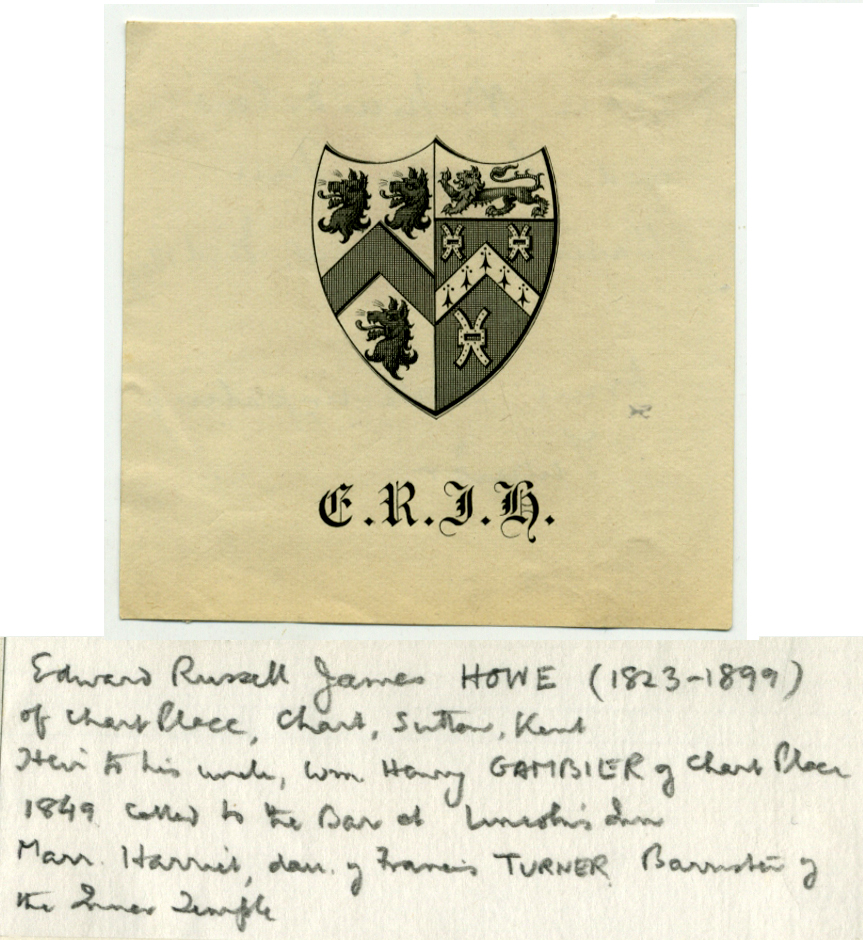 E.R.J.H.
Edward Russell James HOWE (1823-1899)
of Chart Place, Chart, Sutton, Kent
Heir to his uncle, Wm. Henry GAMBIER of Chart Place
1849 called to the Bar at Lincoln's Inn
Marr. Harriet, dau. of Francis TURNER Barrister of
the Inner Temple